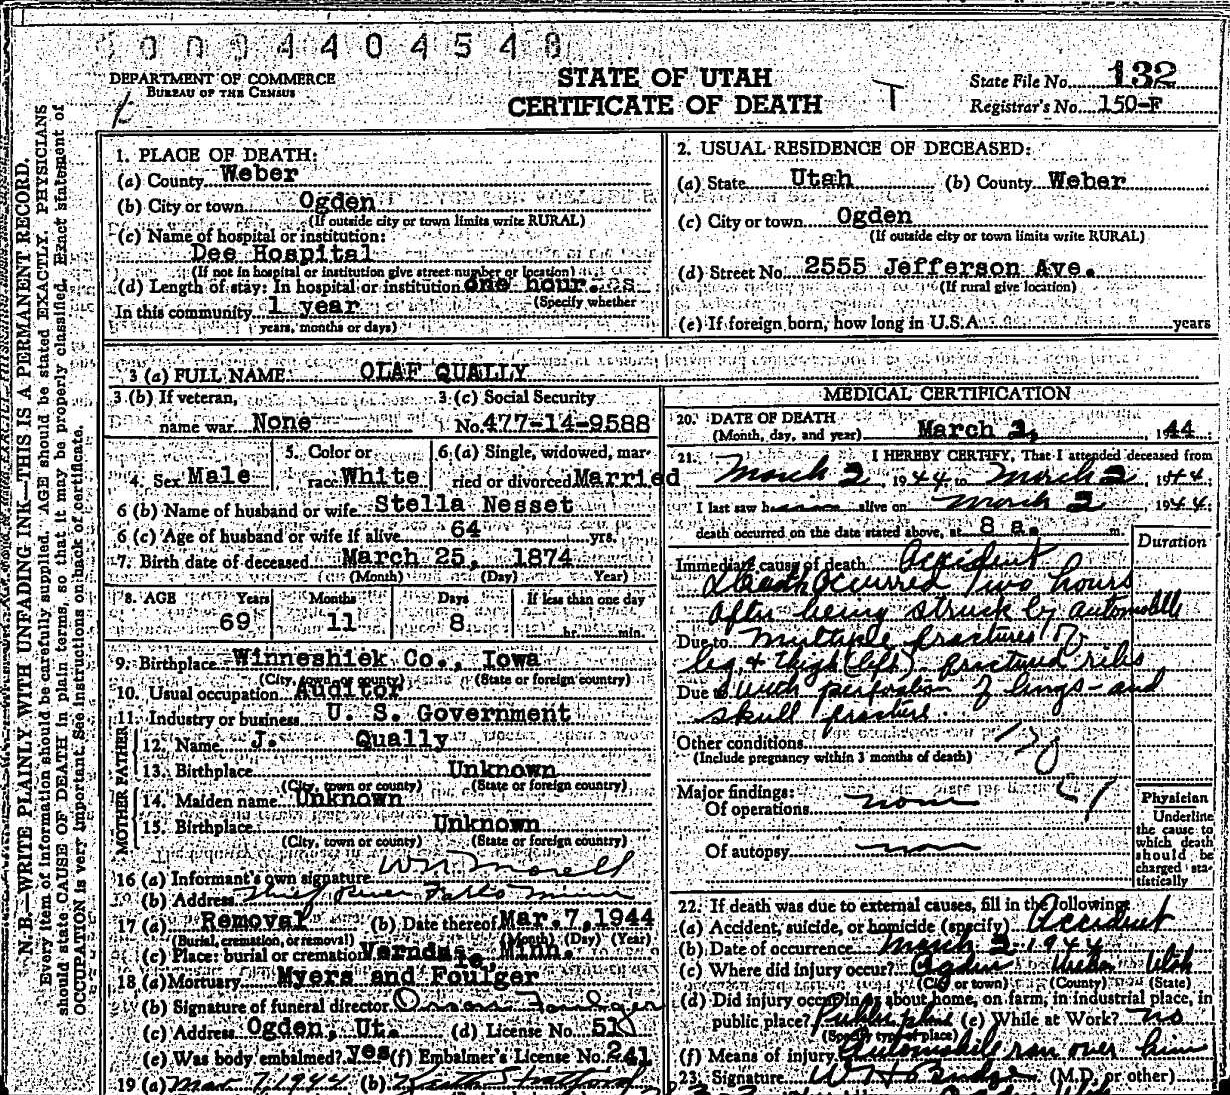 0 0 0 4 4 0 4 5 4 8
DEPARTMENT OF COMMERCE
BUREAU OF THE CENSUS
STATE OF UTAH
CERTIFICATE OF DEATH
T
State File No. 132
Registrar's No. 150-F
N. B.—WRITE PLAINLY WITH UNFADING INK—THIS IS A PERMANENT RECORD.
Every item of information should be carefully supplied. AGE should be stated EXACTLY. PHYSICIANS
should state CAUSE OF DEATH in plain terms, so that it may be properly classified. Exact statement of
OCCUPATION is very important. See instructions on back of certificate.
1. PLACE OF DEATH:
(a) County Weber
(b) City or town Ogden
(If outside city or town limits write RURAL)
(c) Name of hospital or institution:
Dee Hospital
(If not in hospital or institution give street number or location)
(d) Length of stay: In hospital or institution one hour.
(Specify whether
In this community 1 year
years, months or days)
2. USUAL RESIDENCE OF DECEASED:
(a) State Utah (b) County Weber
(c) City or town Ogden
(If outside city or town limits write RURAL)
(d) Street No. 2555 Jefferson Ave.
(If rural give location)
(e) If foreign born, how long in U.S.A. years
3 (a) FULL NAME OLAF QUALLY
3 (b) If veteran, 3 (c) Social Security
name war None No. 477-14-9588
4. Sex Male 5. Color or race White 6. (a) Single, widowed, married or divorced Married
6 (b) Name of husband or wife Stella Nesset
6 (c) Age of husband or wife if alive 64 yrs.
7. Birth date of deceased March 25, 1874
(Month) (Day) Year)
8. AGE Years Months Days If less than one day
69 11 8 hr. min.
9. Birthplace Winneshiek Co., Iowa
(City, town, or county) (State or foreign country)
10. Usual occupation Auditor
11. Industry or business U. S. Government
FATHER
12. Name J. Qually
13. Birthplace Unknown
(City, town or county) (State or foreign country)
MOTHER
14. Maiden name Unknown
15. Birthplace Unknown
(City, town or county) (State or foreign country)
16 (a) Informant's own signature W N Morell
(b) Address Thief River Falls Minn
17 (a) Removal (b) Date thereof Mar. 7, 1944
(Burial, cremation, or removal) (Month) (Day) (Year)
(c) Place: burial or cremation Verndale, Minn.
18 (a) Mortuary Myers and Foulger
(b) Signature of funeral director Orson Foulger
(c) Address Ogden, Ut. (d) License No. 51
(e) Was body embalmed? yes (f) Embalmer's License No. 241
19 (a) Mar 7, 1944 (b)
MEDICAL CERTIFICATION
20. DATE OF DEATH
(Month, day, and year) March 3, 1944
21. I HEREBY CERTIFY, That I attended deceased from
March 2, 1944 to March 2, 1944
I last saw h alive on March 2 1944
death occurred on the date stated above, at 8 a. m.
Duration
Immediate cause of death Accident
Death Ocurred two hours
after being struck by automobile
Due to Multiple fractures of
leg & thigh (left). fractured ribs
Due to with perforation of lungs - and
skull fracture.
Other conditions
(Include pregnancy within 3 months of death)
Major findings:
Of operations none
Of autopsy none
Physician
Underline
the cause to
which death
should be
charged sta-
tistically
22. If death was due to external causes, fill in the following:
(a) Accident, suicide, or homicide (specify) Accident
(b) Date of occurrence March 2 1944
(c) Where did injury occur? Ogden Weber Utah
(City or town) (County) (State)
(d) Did injury occur in or about home, on farm, in industrial place, in
public place? Public place (e) While at Work? no
(Specify type of place)
(f) Means of injury Automobile ran over him
23. Signature (M.D. or other)